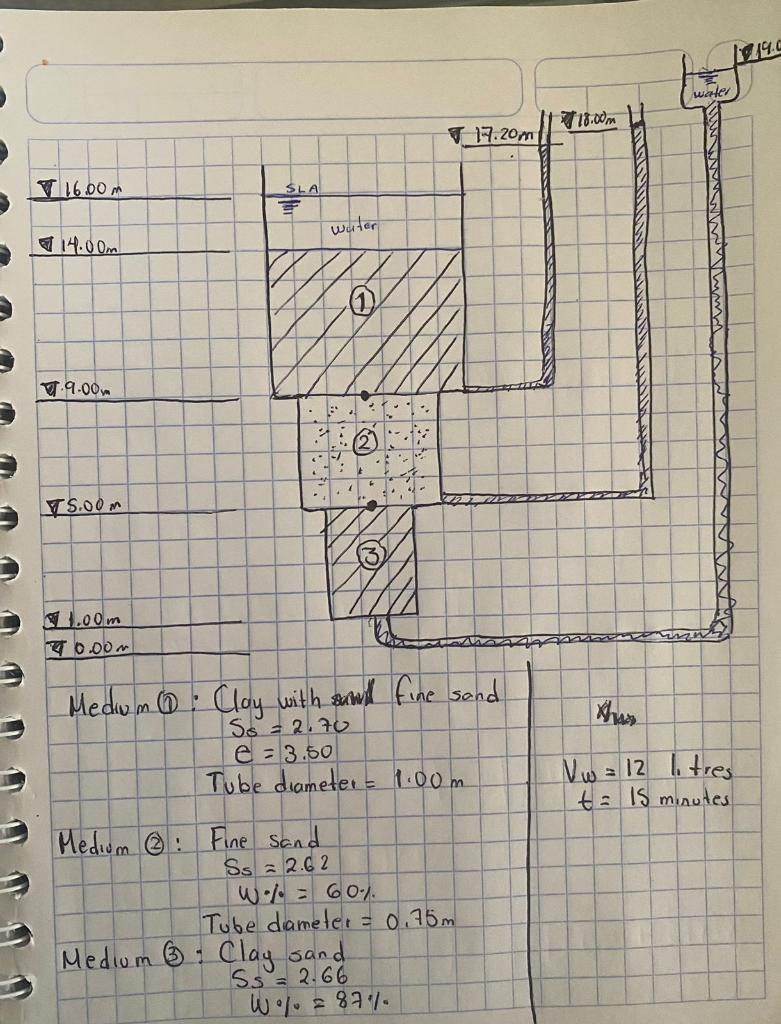 19.0
water
17.20m
18.00m
16.00m
SLA
water
14.00m
1
9.00m
2
5.00m
3
1.00m
0.00m
Medium ①: Clay with fine sand
Ss = 2.70
e = 3.50
Tube diameter = 1.00 m
Vw = 12 litres
t = 15 minutes
Medium ②: Fine sand
Ss = 2.62
W% = 60%
Tube diameter = 0.75m
Medium ③: Clay sand
Ss = 2.66
W% = 87%